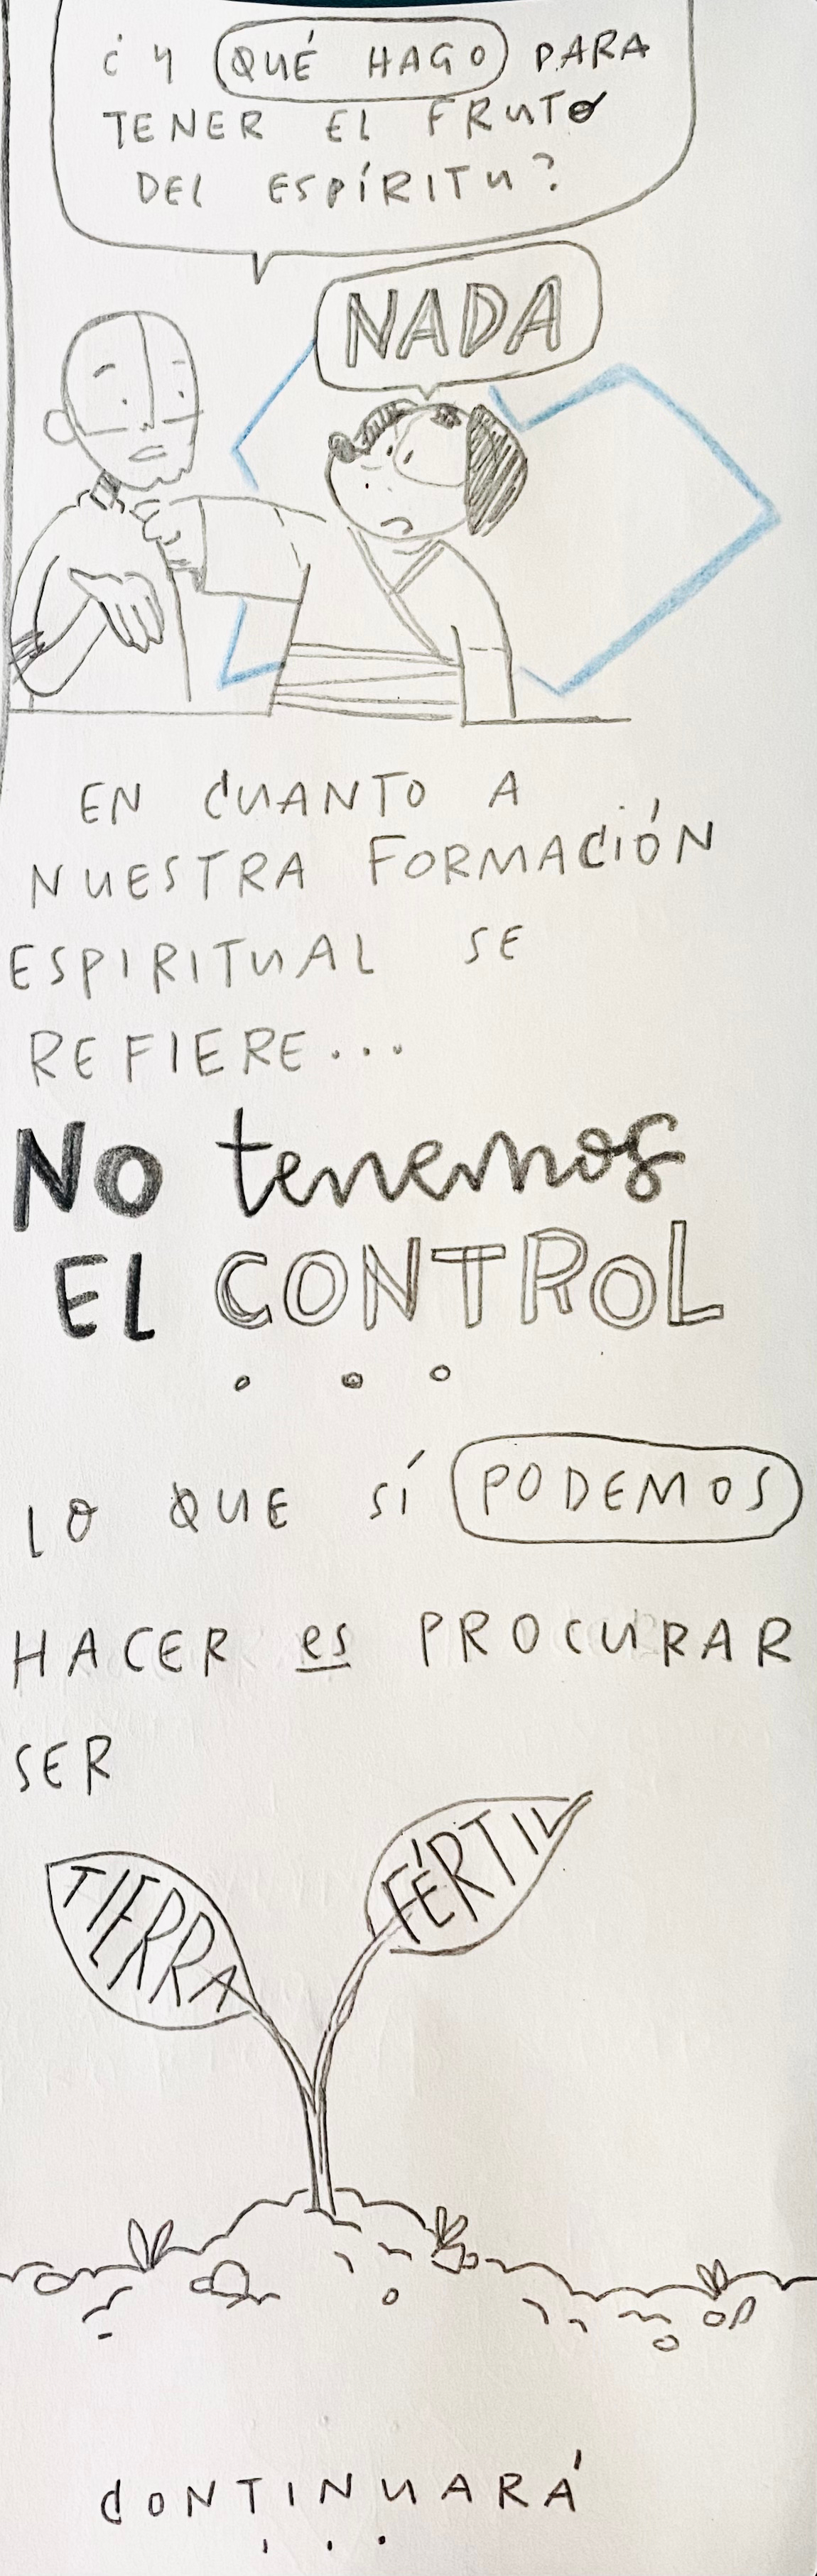 ¿Y QUÉ HAGO PARA
TENER EL FRUTO
DEL ESPÍRITU?
NADA
EN CUANTO A
NUESTRA FORMACIÓN
ESPIRITUAL SE
REFIERE...
NO tenemos
EL CONTROL
...
LO QUE SÍ PODEMOS
HACER es PROCURAR
SER
TIERRA
FÉRTIL
CONTINUARÁ
...